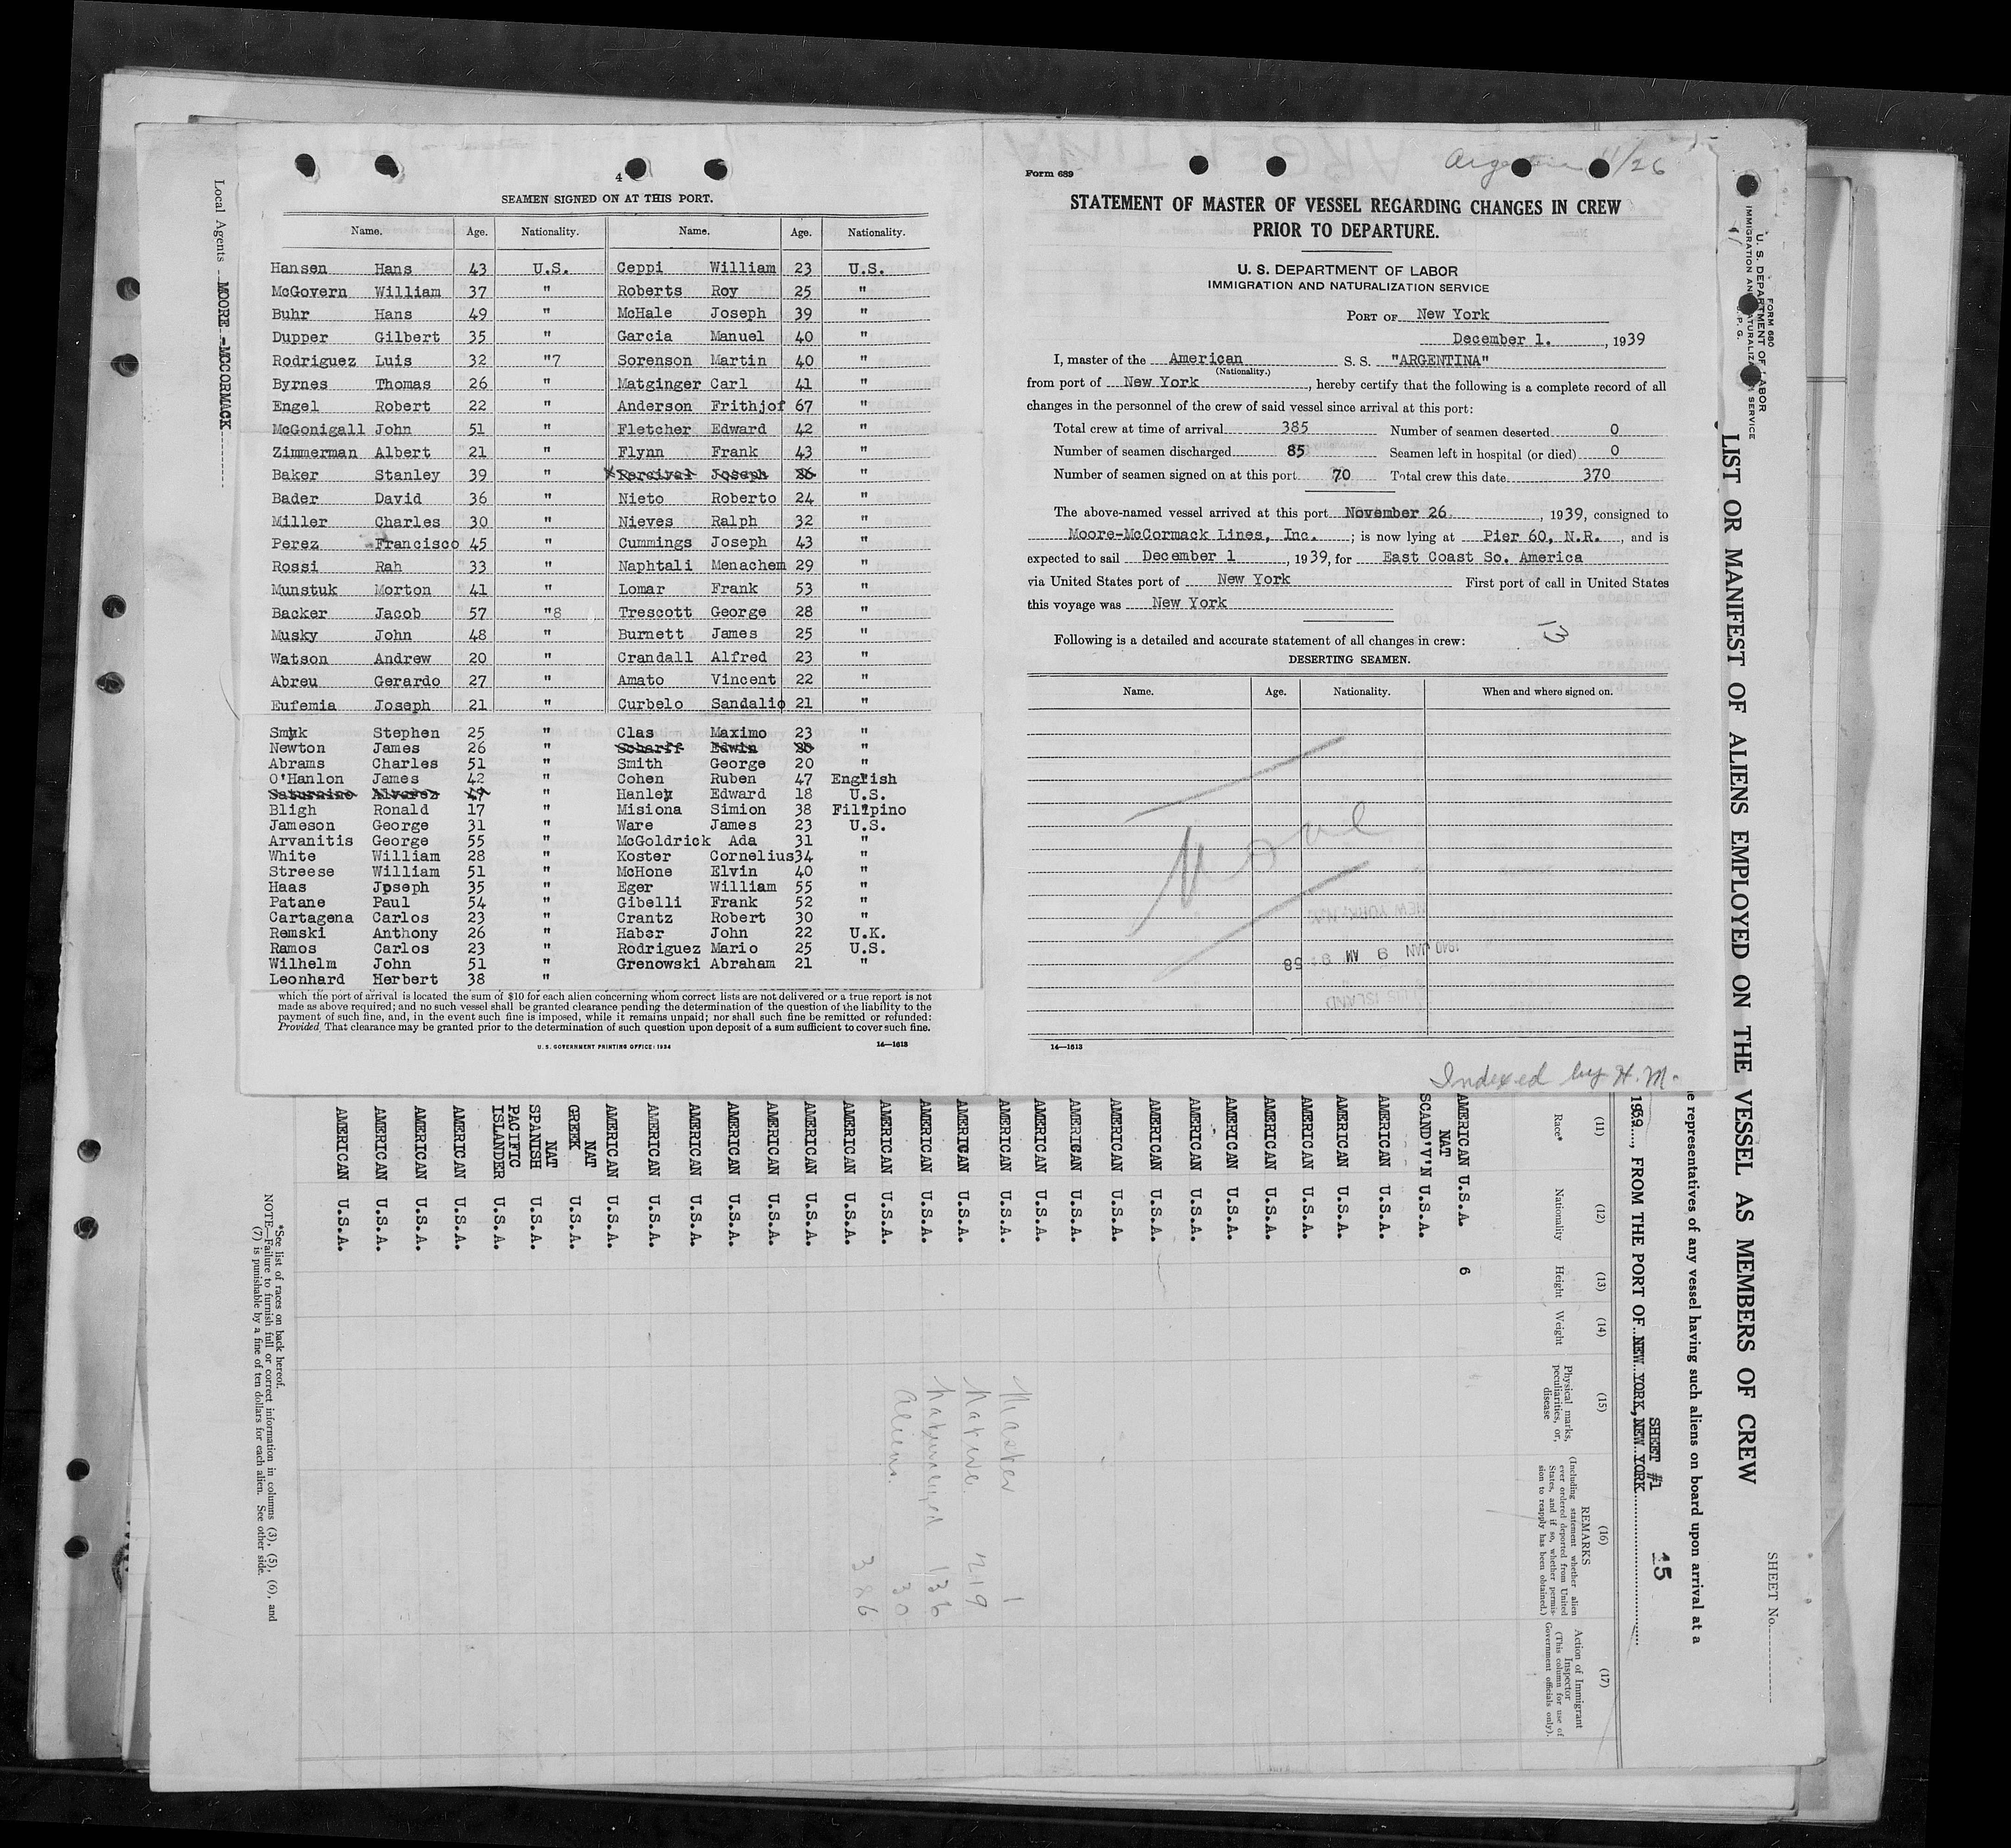 4
SEAMEN SIGNED ON AT THIS PORT.
Name. Age. Nationality. Name. Age. Nationality.
Hansen Hans 43 U.S. Ceppi William 23 U.S.
McGovern William 37 " Roberts Roy 25 "
Buhr Hans 49 " McHale Joseph 39 "
Dupper Gilbert 35 " Garcia Manuel 40 "
Rodriguez Luis 32 "7 Sorenson Martin 40 "
Byrnes Thomas 26 " Matginger Carl 41 "
Engel Robert 22 " Anderson Frithjof 67 "
McGonigall John 51 " Fletcher Edward 42 "
Zimmerman Albert 21 " Flynn Frank 43 "
Baker Stanley 39 " Percival Joseph 26 "
Bader David 36 " Nieto Roberto 24 "
Miller Charles 30 " Nieves Ralph 32 "
Perez Francisco 45 " Cummings Joseph 43 "
Rossi Rah 33 " Naphtali Menachem 29 "
Munstuk Morton 41 " Lomar Frank 53 "
Backer Jacob 57 "8 Trescott George 28 "
Musky John 48 " Burnett James 25 "
Watson Andrew 20 " Crandall Alfred 23 "
Abreu Gerardo 27 " Amato Vincent 22 "
Eufemia Joseph 21 " Curbelo Sandalio 21 "
Smyk Stephen 25 " Clas Maximo 23 "
Newton James 26 " Scharff Edwin "
Abrams Charles 51 " Smith George 20 "
O'Hanlon James 42 " Cohen Ruben 47 English
Saturnino Alvarez 47 " Hanley Edward 18 U.S.
Bligh Ronald 17 " Misiona Simion 38 Filipino
Jameson George 31 " Ware James 23 U.S.
Arvanitis George 55 " McGoldrick Ada 31 "
White William 28 " Koster Cornelius 34 "
Streese William 51 " McHone Elvin 40 "
Haas Joseph 35 " Eger William 55 "
Patane Paul 54 " Gibelli Frank 52 "
Cartagena Carlos 23 " Crantz Robert 30 "
Remski Anthony 26 " Haber John 22 U.K.
Ramos Carlos 23 " Rodriguez Mario 25 U.S.
Wilhelm John 51 " Grenowski Abraham 21 "
Leonhard Herbert 38 "
which the port of arrival is located the sum of $10 for each alien concerning whom correct lists are not delivered or a true report is not
made as above required; and no such vessel shall be granted clearance pending the determination of the question of the liability to the
payment of such fine, and, in the event such fine is imposed, while it remains unpaid; nor shall such fine be remitted or refunded:
Provided, That clearance may be granted prior to the determination of such question upon deposit of a sum sufficient to cover such fine.
U.S. GOVERNMENT PRINTING OFFICE: 1934 14—1613
Local Agents MOORE-MCCORMACK
Form 689
Argentina 11/26
STATEMENT OF MASTER OF VESSEL REGARDING CHANGES IN CREW
PRIOR TO DEPARTURE.
U. S. DEPARTMENT OF LABOR
IMMIGRATION AND NATURALIZATION SERVICE
PORT OF New York
December 1. , 1939
I, master of the American S. S. "ARGENTINA"
(Nationality.)
from port of New York , hereby certify that the following is a complete record of all
changes in the personnel of the crew of said vessel since arrival at this port:
Total crew at time of arrival 385 Number of seamen deserted 0
Number of seamen discharged 85 Seamen left in hospital (or died) 0
Number of seamen signed on at this port 70 Total crew this date 370
The above-named vessel arrived at this port November 26 , 1939, consigned to
Moore-McCormack Lines, Inc. ; is now lying at Pier 60, N.R. , and is
expected to sail December 1 , 1939, for East Coast So. America
via United States port of New York First port of call in United States
this voyage was New York
13
Following is a detailed and accurate statement of all changes in crew:
DESERTING SEAMEN.
Name. Age. Nationality. When and where signed on.
None
1940 JAN 9 AM 8:58
ELLIS ISLAND
NEW YORK, N.Y.
14—1613
Indexed by H. M.
FORM 680
U. S. DEPARTMENT OF LABOR
IMMIGRATION AND NATURALIZATION SERVICE
SHEET No.
LIST OR MANIFEST OF ALIENS EMPLOYED ON THE VESSEL AS MEMBERS OF CREW
e representatives of any vessel having such aliens on board upon arrival at a
SHEET #1 15
1939, FROM THE PORT OF NEW YORK, NEW YORK
(11) (12) (13) (14) (15) (16) (17)
Race* Nationality Height Weight
Physical marks, peculiarities, or disease
REMARKS
(Including statement whether alien ever ordered deported from United States, and if so, whether permission to reapply has been obtained.)
Action of Immigrant Inspector
(This column for use of Government officials only).
AMERICAN U.S.A. 6
NAT
SCAND'V'N U.S.A.
AMERICAN U.S.A.
AMERICAN U.S.A.
AMERICAN U.S.A.
AMERICAN U.S.A.
AMERICAN U.S.A.
AMERICAN U.S.A.
AMERICAN U.S.A.
AMERICAN U.S.A.
AMERICAN U.S.A.
AMERICAN U.S.A.
AMERICAN U.S.A.
AMERICAN U.S.A.
AMERICAN U.S.A.
AMERICAN U.S.A.
AMERICAN U.S.A.
AMERICAN U.S.A.
AMERICAN U.S.A.
AMERICAN U.S.A.
AMERICAN U.S.A.
AMERICAN U.S.A.
AMERICAN U.S.A.
NAT
GREEK U.S.A.
NAT
SPANISH U.S.A.
PACIFIC
ISLANDER U.S.A.
AMERICAN U.S.A.
AMERICAN U.S.A.
AMERICAN U.S.A.
AMERICAN U.S.A.
Master 1
Native 219
Naturalized 136
Aliens. 30
386
*See list of races on back hereof.
NOTE—Failure to furnish full or correct information in columns (3), (5), (6), and
(7) is punishable by a fine of ten dollars for each alien. See other side.